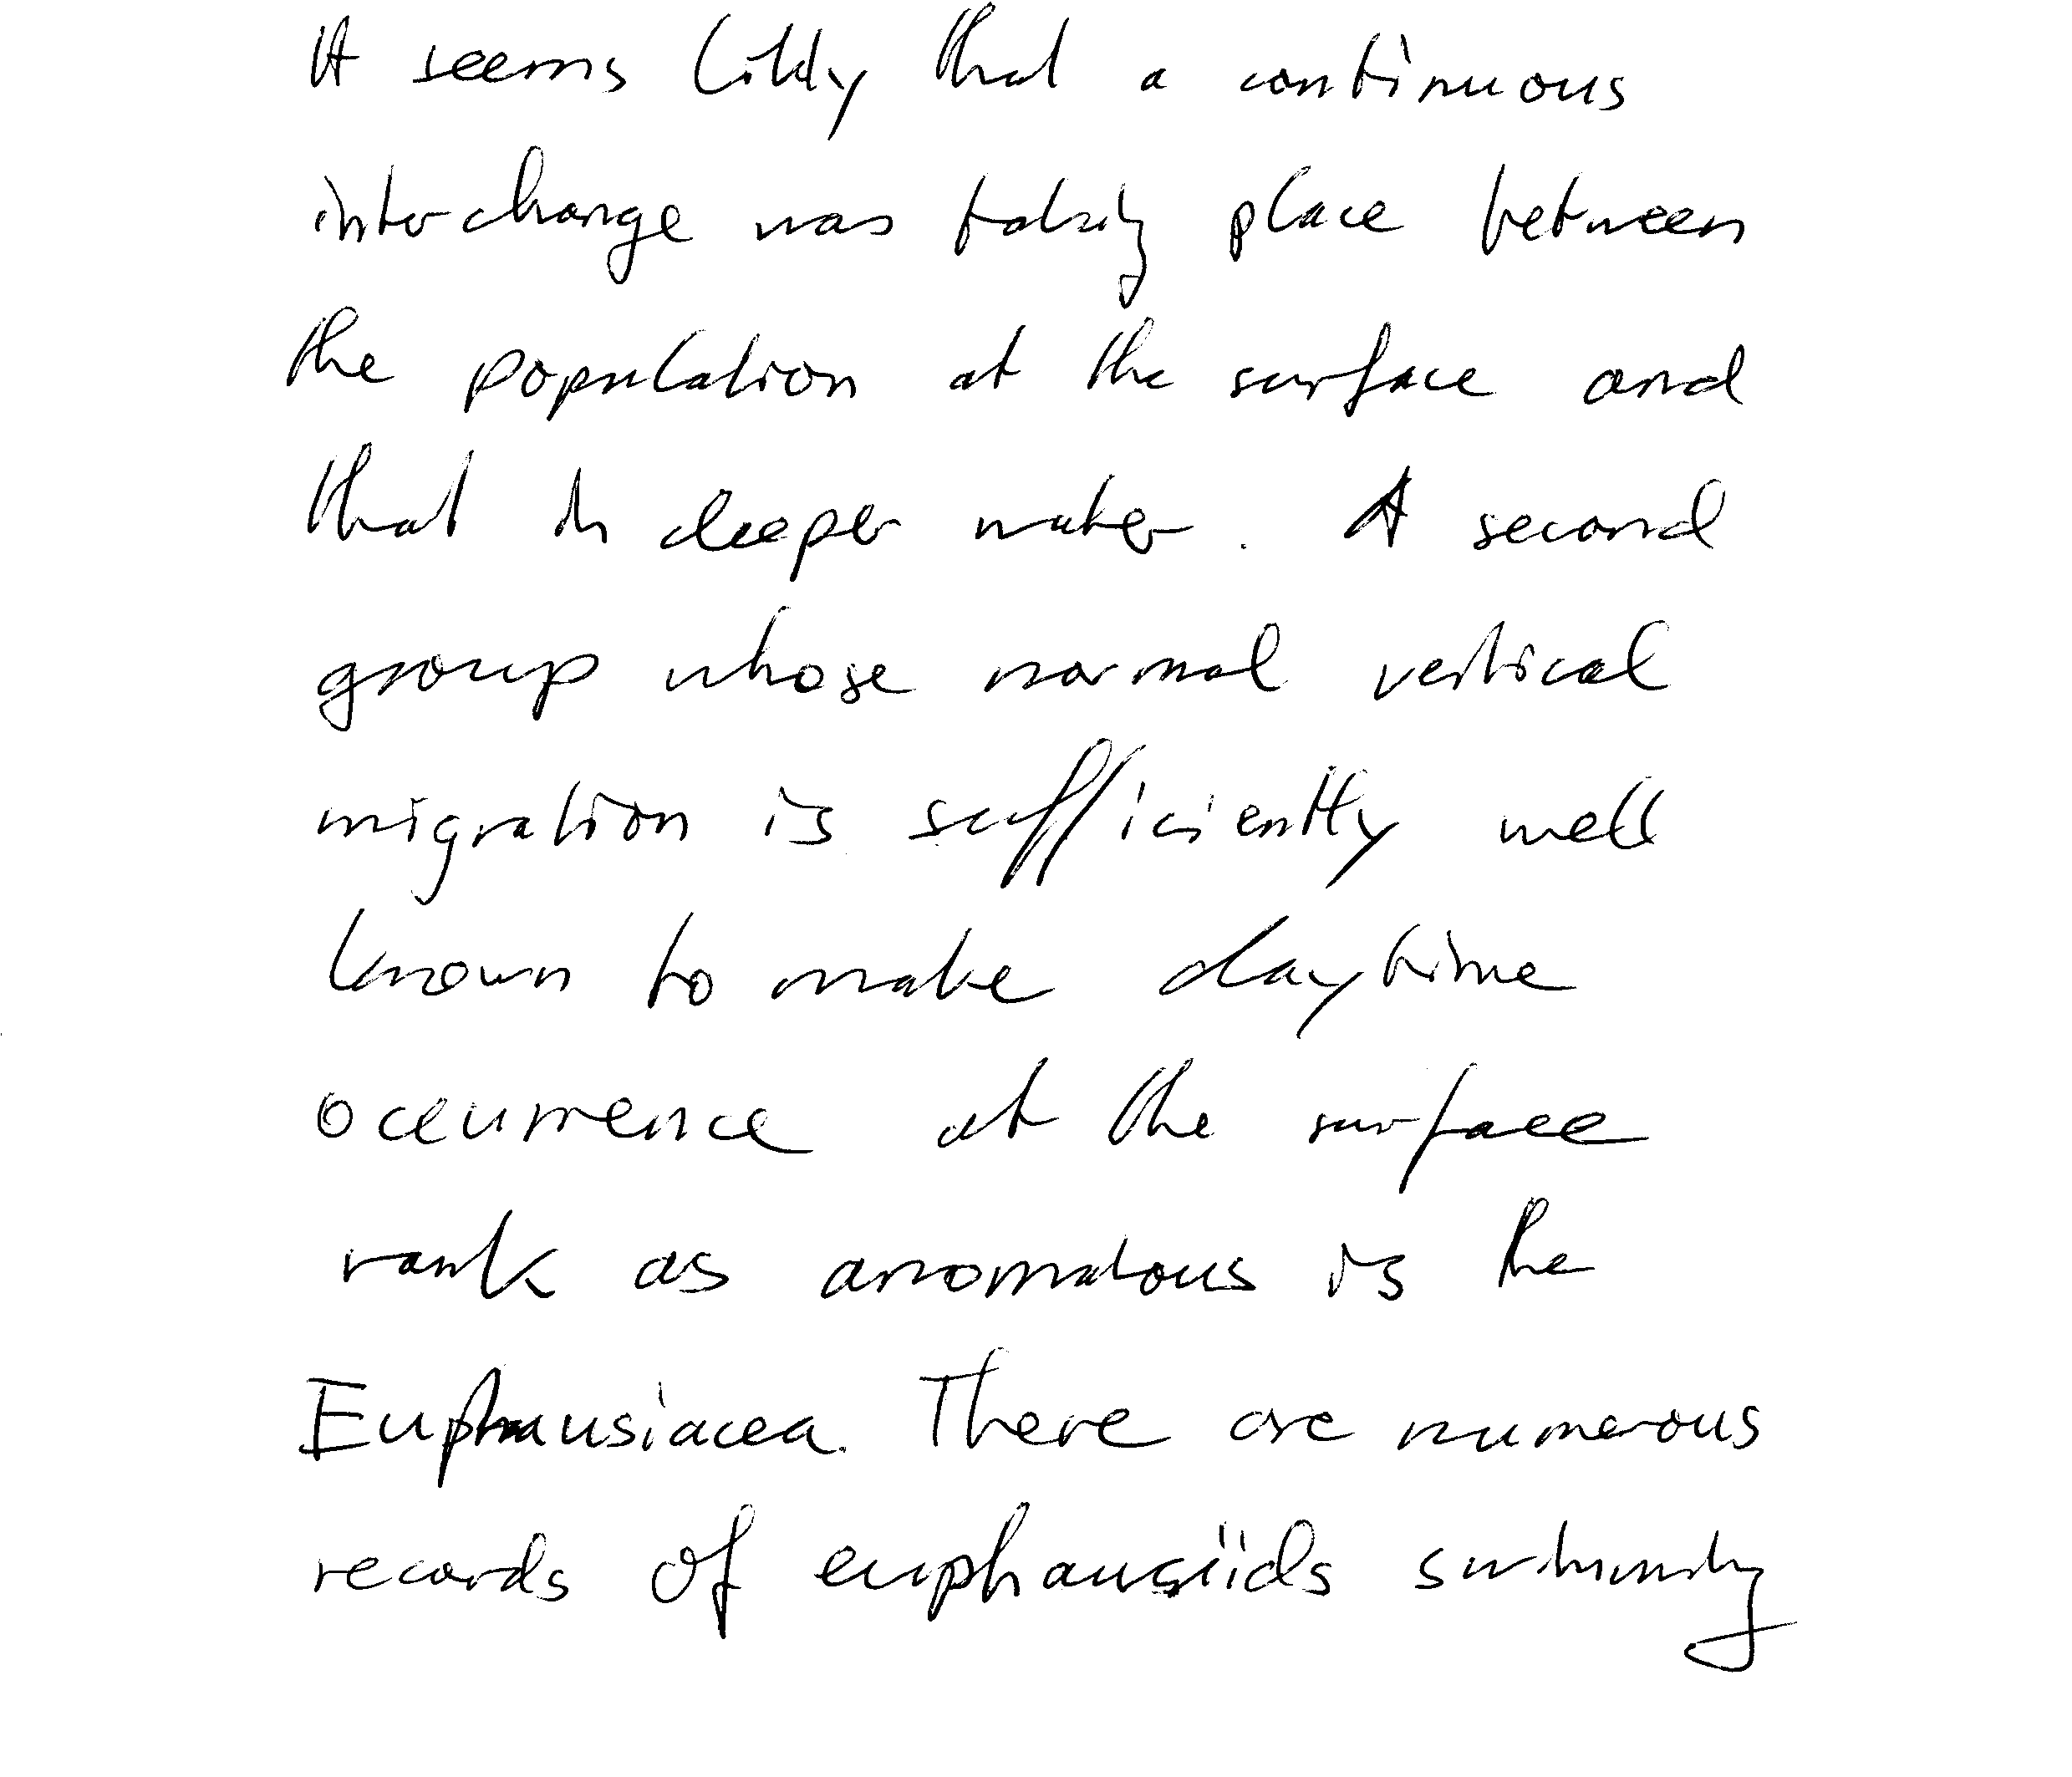 It seems likely that a continuous
interchange was taking place between
the population at the surface and
that in deeper water. A second
group whose normal vertical
migration is sufficiently well
known to make daytime
occurrence at the surface
rank as anomalous is the
Euphausiacea. There are numerous
records of euphausiids swimming